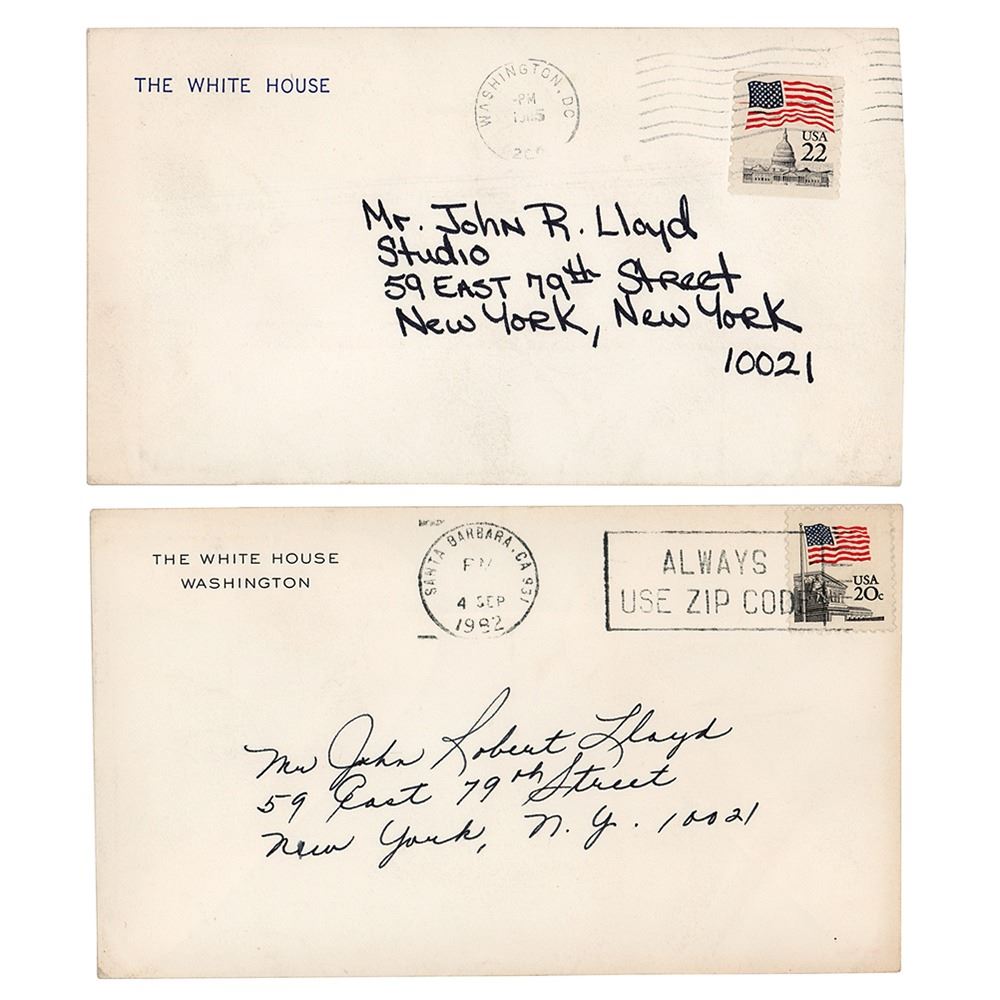 THE WHITE HOUSE
WASHINGTON, DC
PM
1985
USA
22
Mr. John R. Lloyd
Studio
59 East 79th Street
New York, New York
10021
THE WHITE HOUSE
WASHINGTON
SANTA BARBARA, CA 931
PM
4 SEP
1982
ALWAYS
USE ZIP CODE
USA
20c
Mr John Robert Lloyd
59 East 79th Street
New York, N.Y. 10021